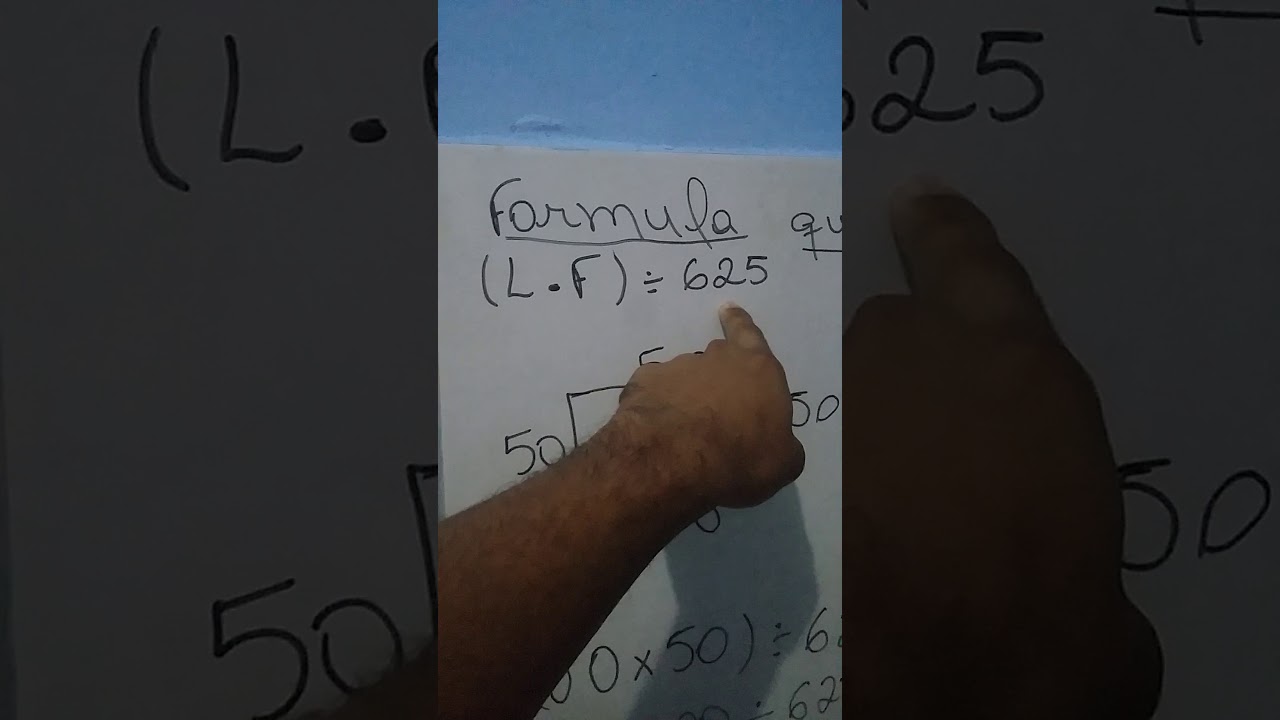 Formula qu
(L.F) ÷ 625
50
50
0 x 50) ÷ 6
÷ 62